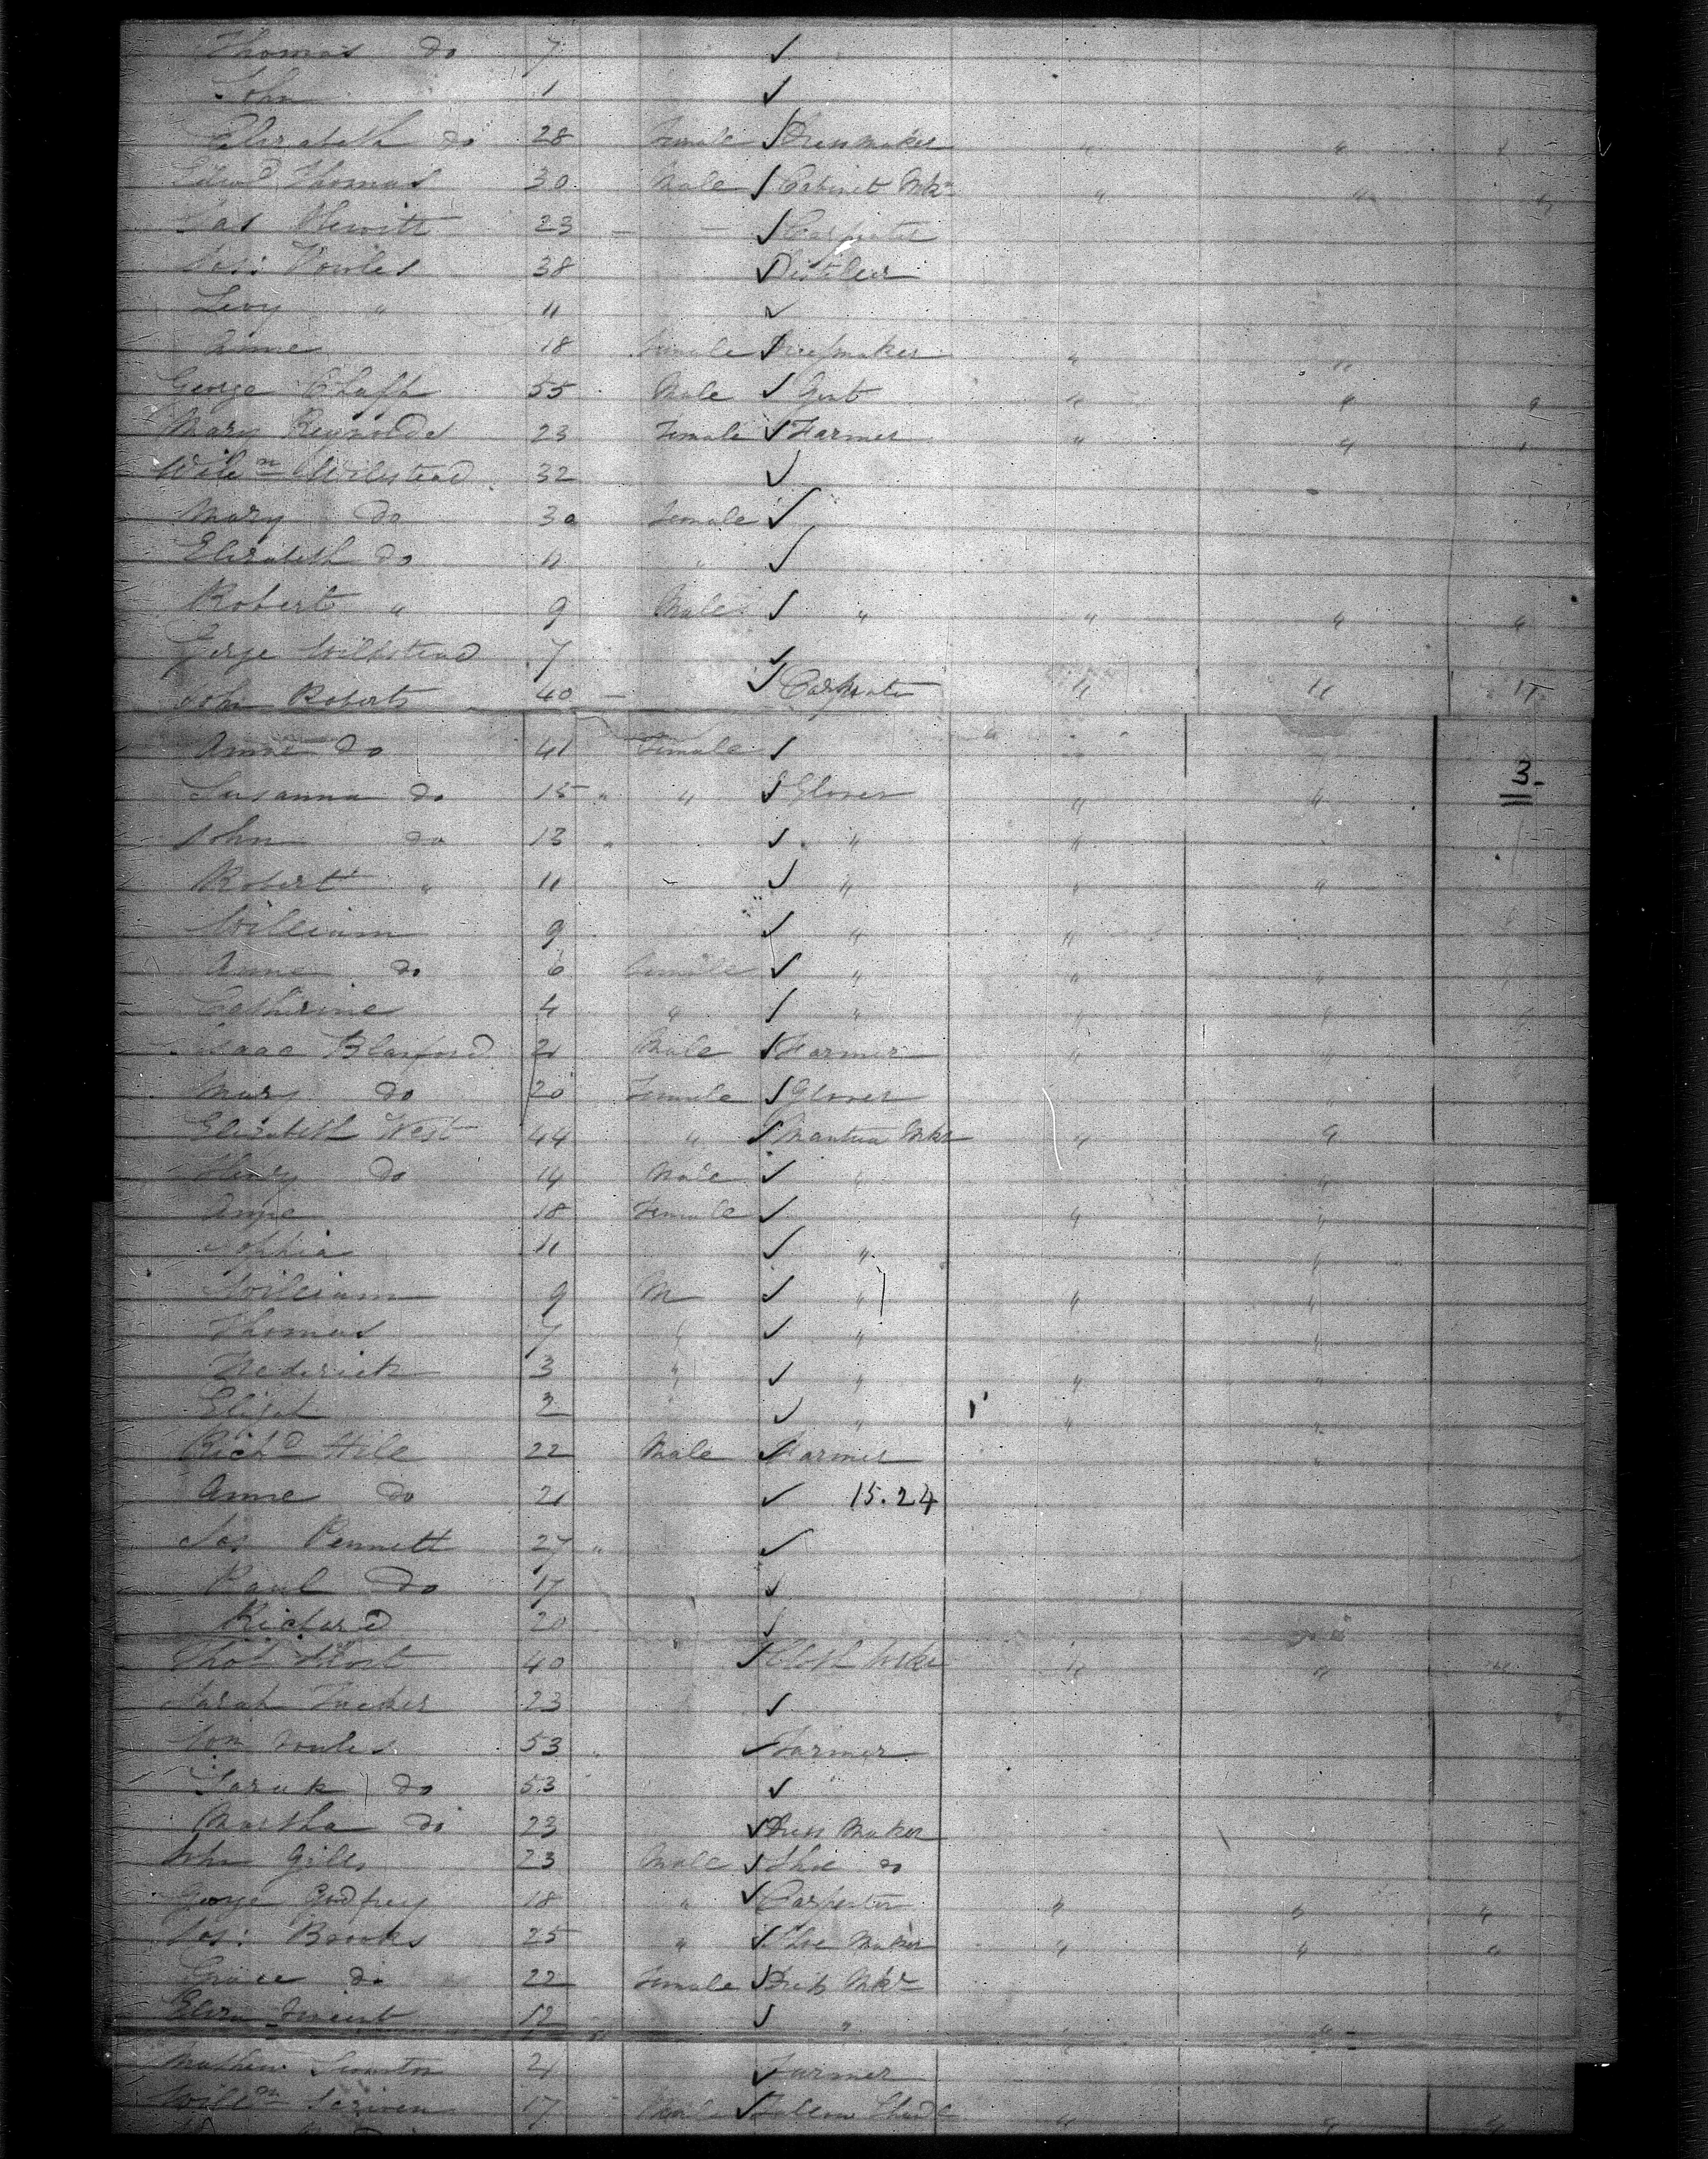 Thomas do 7 ✓
John 1 ✓
Elizabeth do 28 Female ✓ Dressmaker " " "
Edwd Thomas 30 Male ✓ Cabinet Mkr " " "
Jas Hewitt 23 — — ✓ Carpenter
Jos: Vowles 38 ✓ Distiller
Levy " 11 ✓
Anne 18 Female ✓ Dressmaker " "
George 55 Male ✓ Gent " " "
Mary Reynolds 23 Female ✓ Farmer " " "
Willm Wilstead 32 ✓
Mary do 30 Female ✓
Elizabeth do 11 " ✓
Robert " 9 Male ✓ " " " "
Gorge Willstead 7 ✓
John Roberts 40 — ✓ Carpenter " " "
Anne do 41 Female ✓
3-
Susanna do 15 " " ✓ Glover " "
John do 13 " ✓ " "
Robert " 11 ✓ " " "
William 9 ✓ " "
Anne do 6 Female ✓ " " "
Catherine 4 " ✓ " " "
Isaac Blanford 21 Male ✓ Farmer " "
Mary do 20 Female ✓ Glover "
Elizabeth West 44 " ✓ Mantua Mkr " "
Henry do 14 Male ✓ " "
Anne 18 Female ✓ " "
Sophia 11 ✓ " "
William 9 M ✓ " " "
Thomas 7 " ✓ " "
Frederick 3 " ✓ " " "
Elijah 2 ✓ " " "
Richd Hile 22 Male ✓ Farmer "
Anne do 21 ✓ 15.24
Jas Pennett 27 " ✓
Paul do 17 ✓
Richard 20 ✓
Thos 40 ✓ Cloth Wker " "
Sarah Tucker 23 ✓
Wm Vowles 53 ✓ Farmer
Sarah do 53 ✓
Martha do 23 ✓ Dress Maker
John Gills 23 Male ✓ Shoe do
George Godfrey 18 " ✓ Carpenter " " "
Jos: Brooks 25 " ✓ Shoe Maker " " "
Grace do 22 Female ✓ Dress Mkr
Eliza 12 ✓ " "
Mathew 21 ✓ Farmer
Willm Scriven 17 Male ✓ " " "